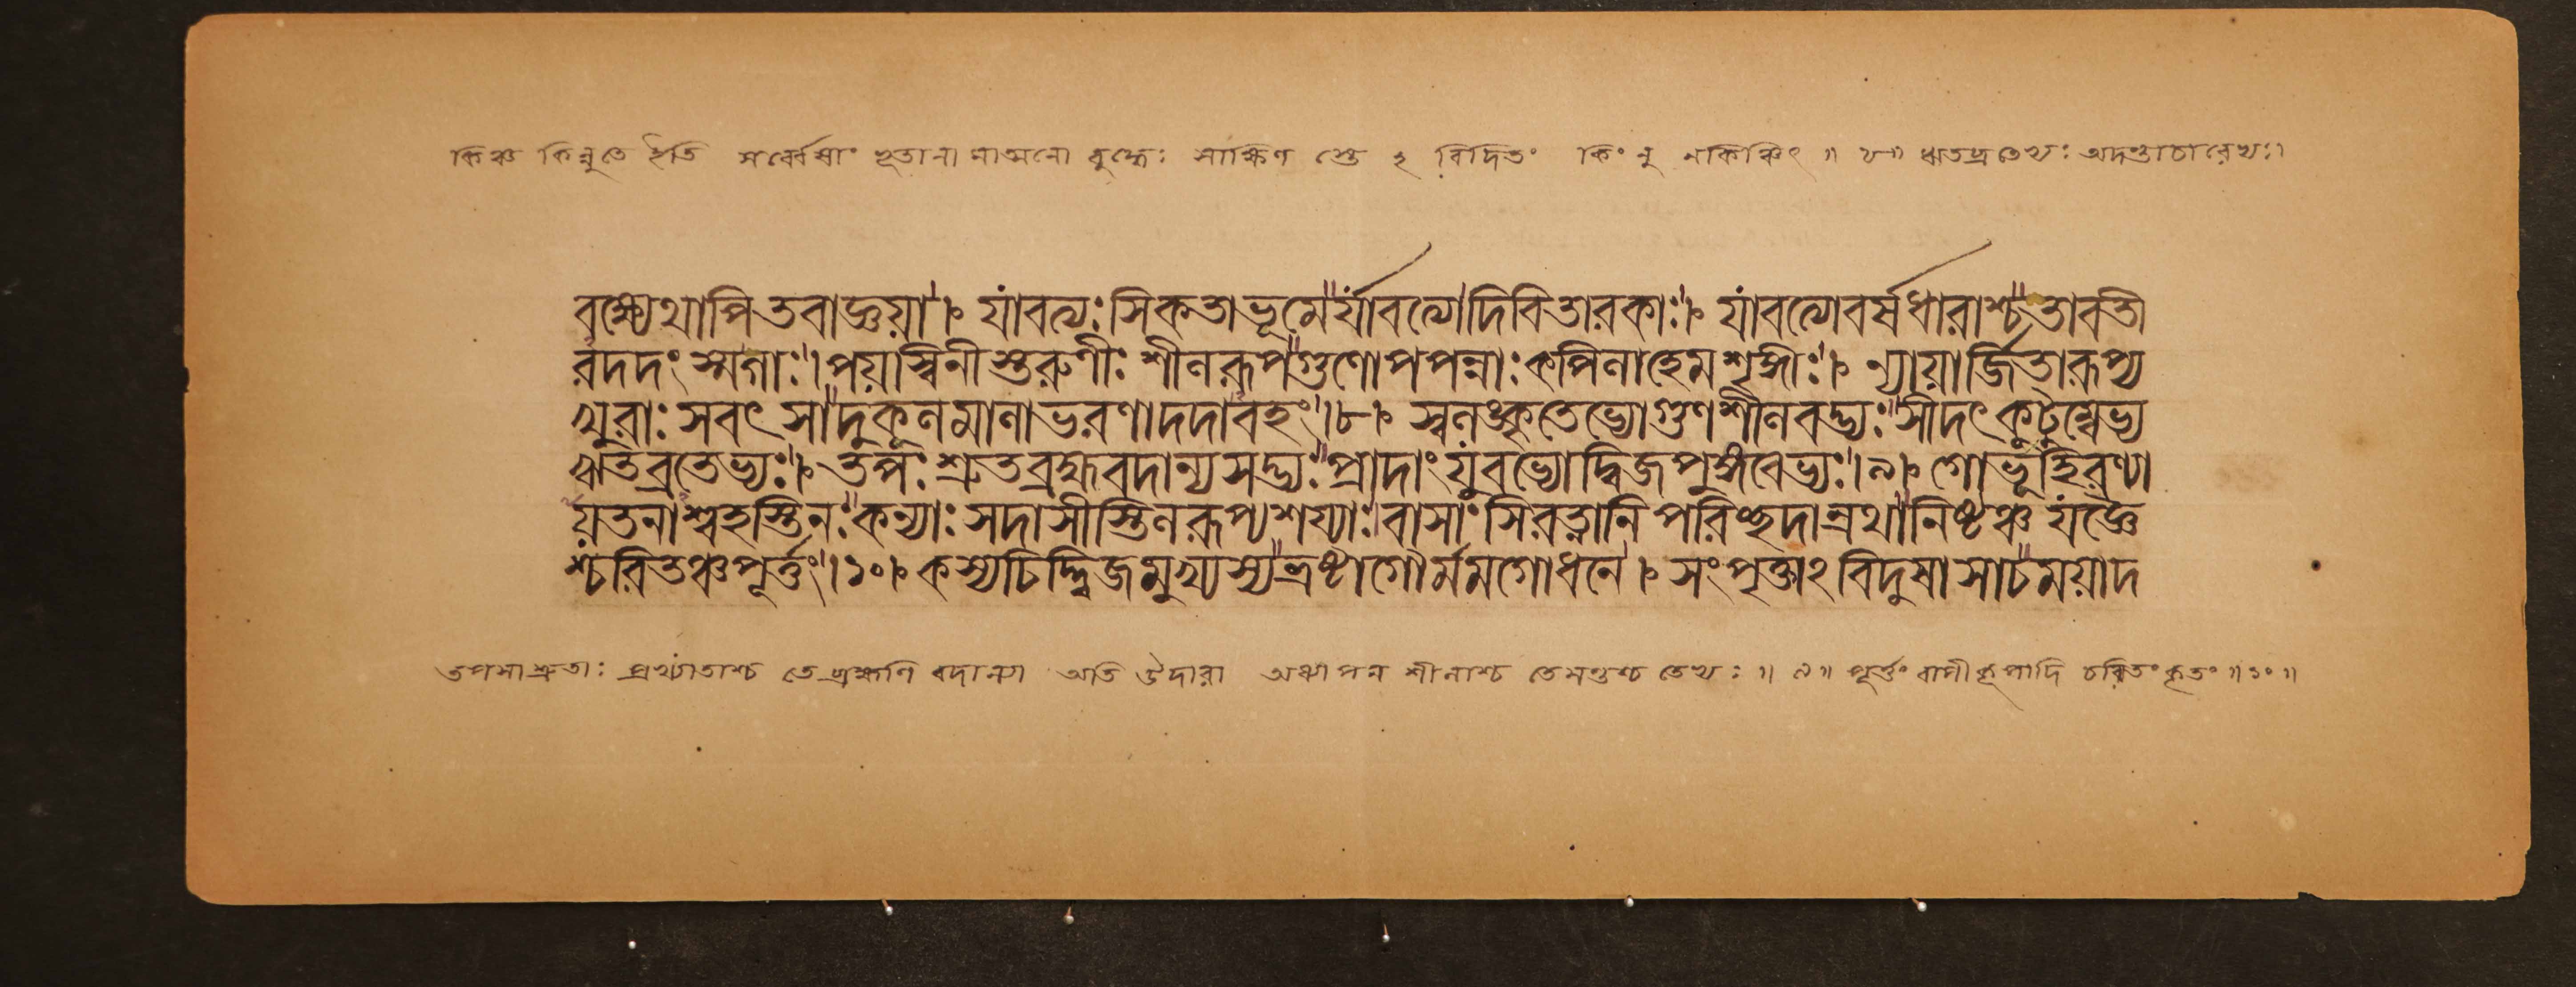 কিঞ্চ কিন্নুতে ইতি সর্ব্বেষাং ভূতানা মাত্মনো বুদ্ধেঃ সাক্ষিণ স্তে ऽ বিদিতং কিং নু নকিঞ্চিৎ ॥ ৮॥ ঋতব্রতেভ্যঃ অদম্ভাচারেভ্যঃ।
বক্ষ্যেথাপিতবাজ্ঞয়া। যাবত্যঃসিকতাভূমের্যাবত্যোদিবিতারকাঃ। যাবত্যোবর্ষধারাশ্চতাবতী
রদদং স্মগাঃ। পয়স্বিনীস্তরুণীঃ শীলরূপগুণোপপন্নাঃকপিলাহেমশৃঙ্গীঃ। ন্যায়ার্জিতারূপ্য
খুরাঃ সবৎ সাদুকূলমালাভরণাদদাবহং।৮। স্বলঙ্কৃতেভ্যোগুণশীলবদ্ভ্যঃসীদৎ কুটুম্বেভ্য
ঋতব্রতেভ্যঃ। তপঃ শ্রুতব্রহ্মবদান্যসদ্ভ্যঃপ্রাদাং যুবভ্যোদ্বিজপুঙ্গবেভ্যঃ।৯। গোভূহিরণ্যা
য়তনাশ্বহস্তিনঃকন্যাঃ সদাসীস্তিলরূপ্যশয্যাঃ। বাসাংসিরত্নানি পরিচ্ছদান্রথানিষ্টঞ্চ যজ্ঞৈ
শ্চরিতঞ্চপূর্ত্তং।১০। কস্যচিদ্দ্বিজমুখ্যস্যভ্রষ্টাগৌর্মমগোধনে। সংপৃক্তাऽবিদুষাসাচময়াদ
তপসাশ্রুতাঃ প্রখ্যাতাশ্চ তে ব্রহ্মণি বদান্যা অতি উদারা অধ্যাপন শীলাশ্চ তেসন্তশ্চ তেভ্যঃ ॥ ৯॥ পূর্ত্তং বাপীকূপাদি চরিতং কৃতং ॥১০॥